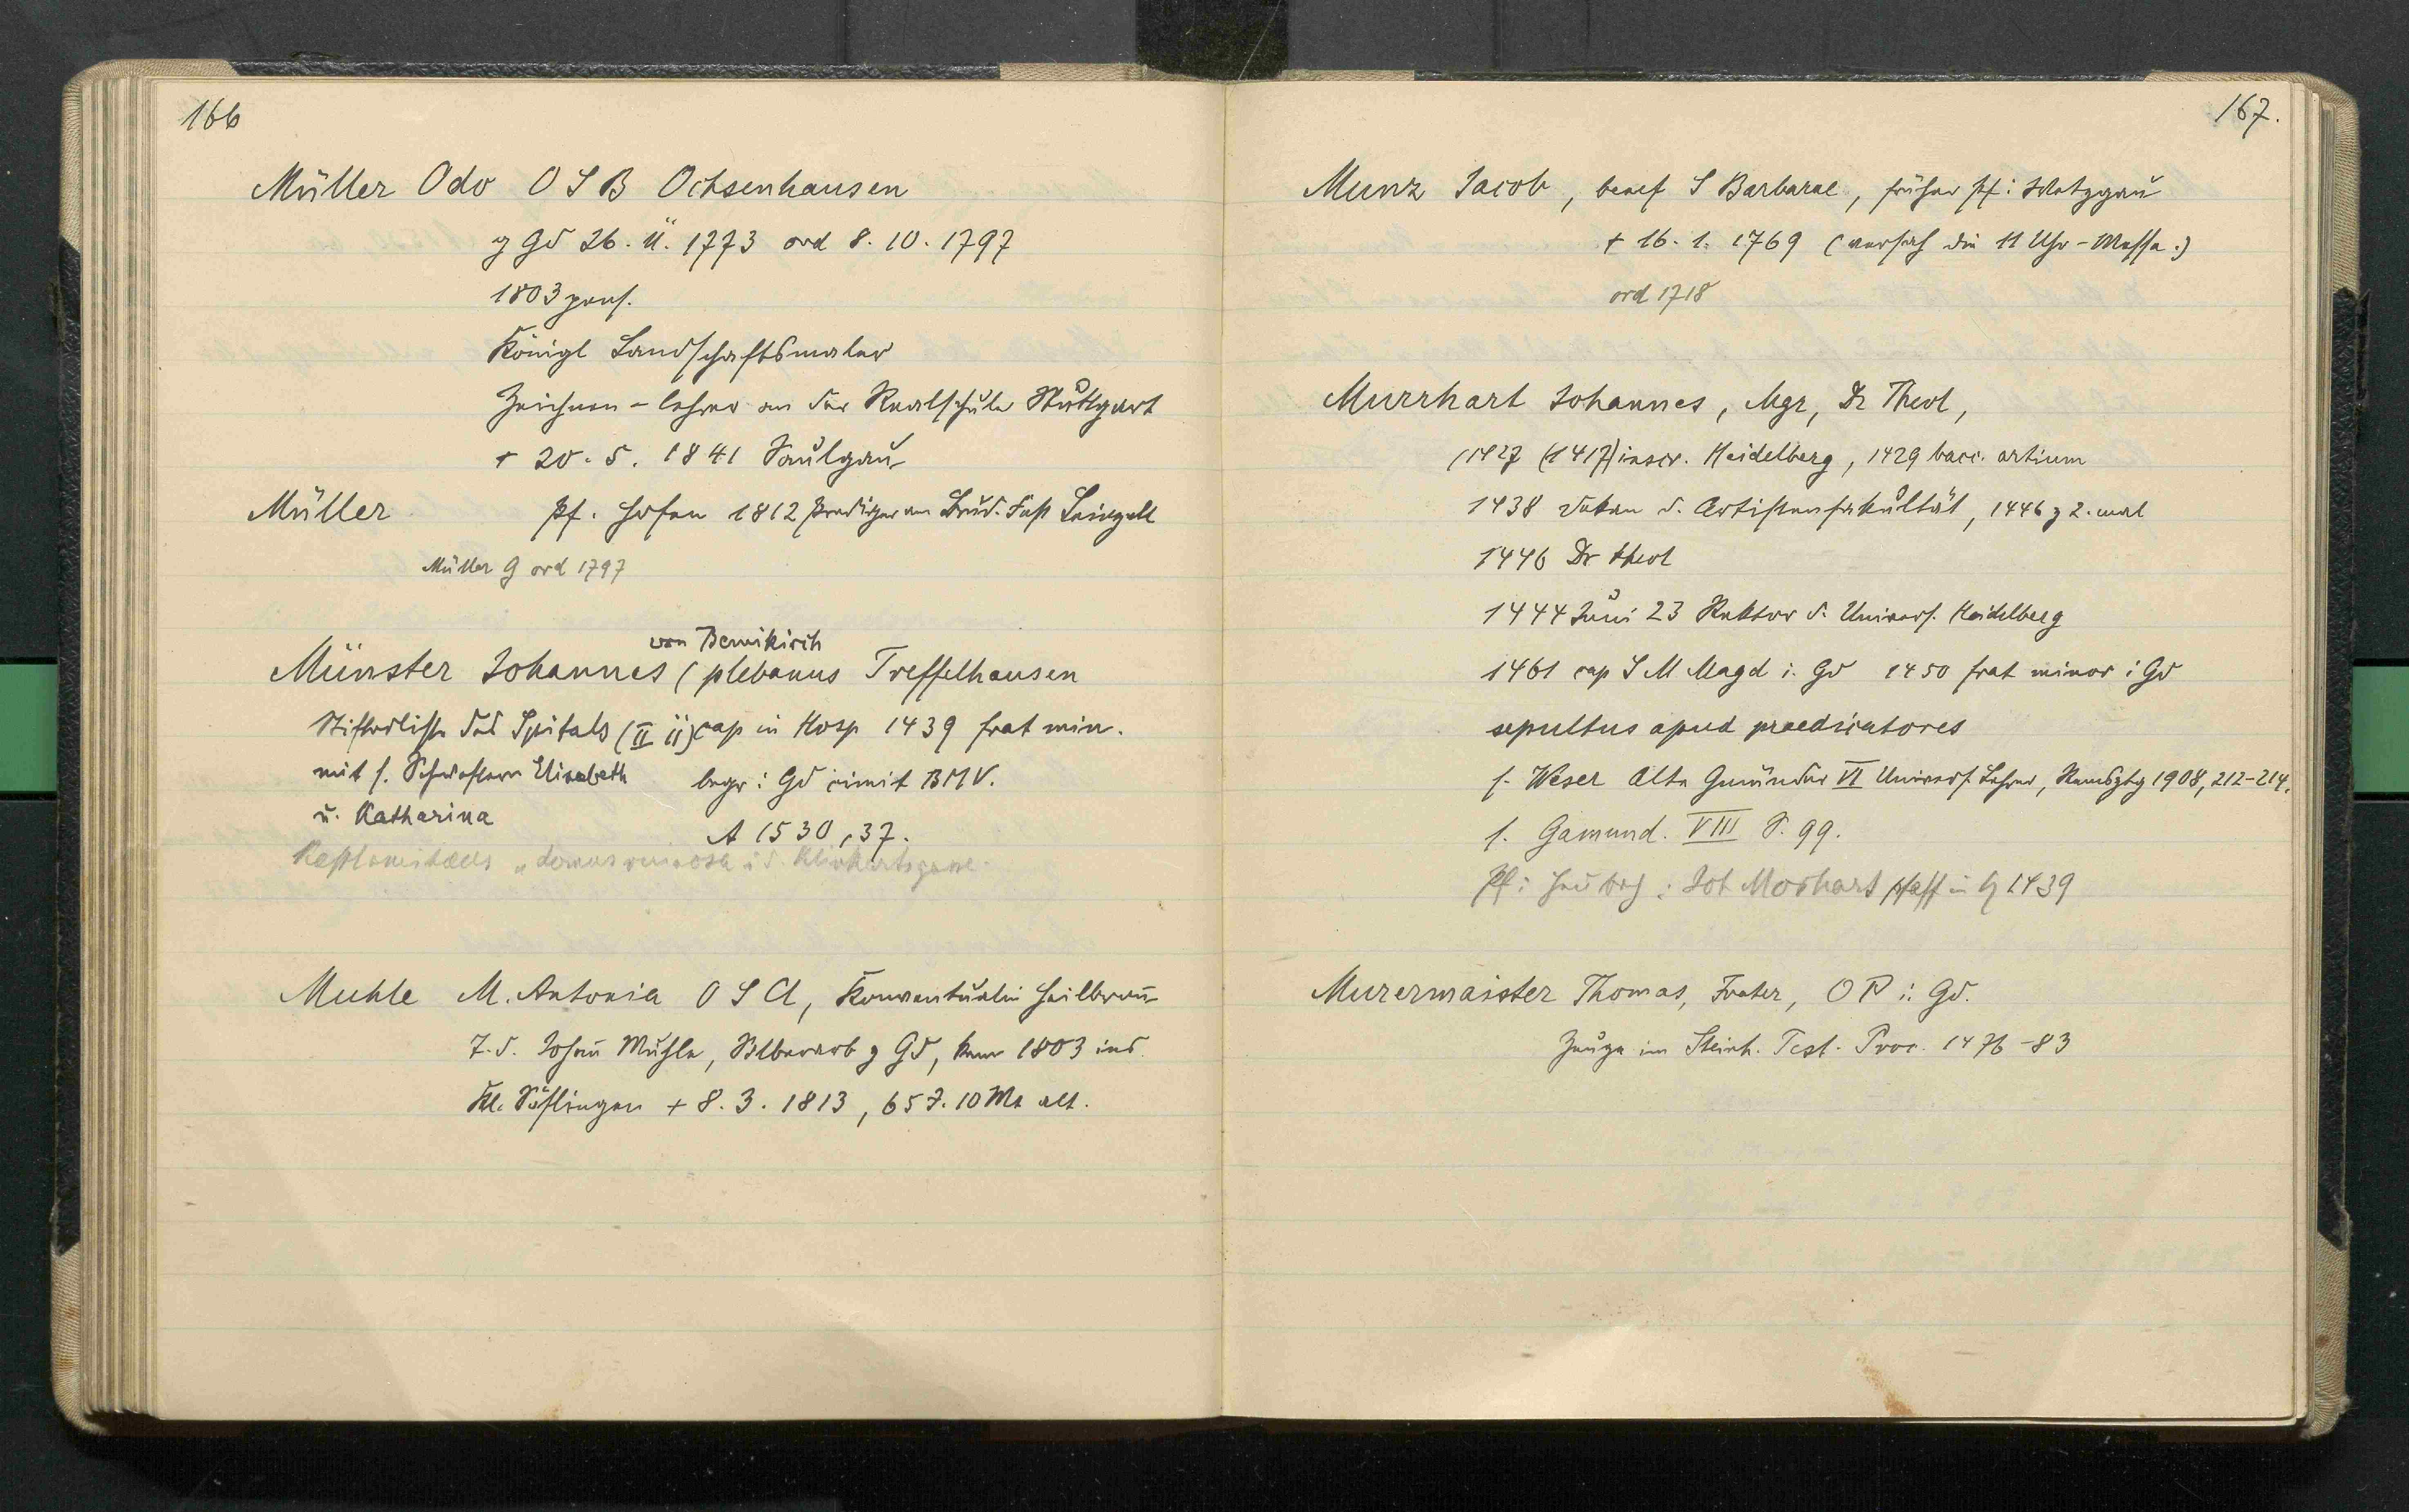 166
Müller Odo O S B Ochsenhausen
g Gd 26. 11. 1773 ord 8. 10. 1797
1803 pens.
Königl Landschaftsmaler
Zeichen-lehrer an der Realschule Stuttgart
+ 20. 5. 1841 Saulgau
Müller Pf. Hofen 1812 Prediger am
Müller G ord 1797
von
Münster Johannes (plebanus Treffelhausen
Stifterliste des Spitals (II ii) cap in Hosp 1439 frat min.
mit s. Schwestern Elisabeth begr: Gd cimit BMV.
u. Katharina
A 1530, 37.
Muhle M. Antonia O S Cl, Konventualin Heilbronn
T. d. Johann Muhle, Silberarb g Gd, kam 1803 ins
Kl. Söflingen + 8. 3. 1813, 65 J. 10 Mt alt.
167.
Munz Jacob, benef S Barbarae, früher Pf: Wetzgau
+ 16. 1. 1769 (versah die 11 Uhr-Messe.)
ord 1718
Murrhart Johannes, Mgr, Dr Theol,
(1427 (1417) inscr. Heidelberg, 1429 bacc. artium
1438 Dekan d. Artistenfakultät, 1446 z 2. mal
1446 Dr theol
1444 Juni 23 Rektor d. Univers. Heidelberg
1461 cap S M Magd i. Gd 1450 frat minor i Gd
sepultus apud praedicatores
s. Weser Alte Gmünder VI Univers. Lehrer, Remsztg 1908, 212-214.
s. Gamund. VIII S. 99.
Pf: : Joh Morhart pfaff in 1439
Murermaister Thomas, Frater, O P i: Gd.
Zeuge im Steinh. Test. Proc. 1476-83